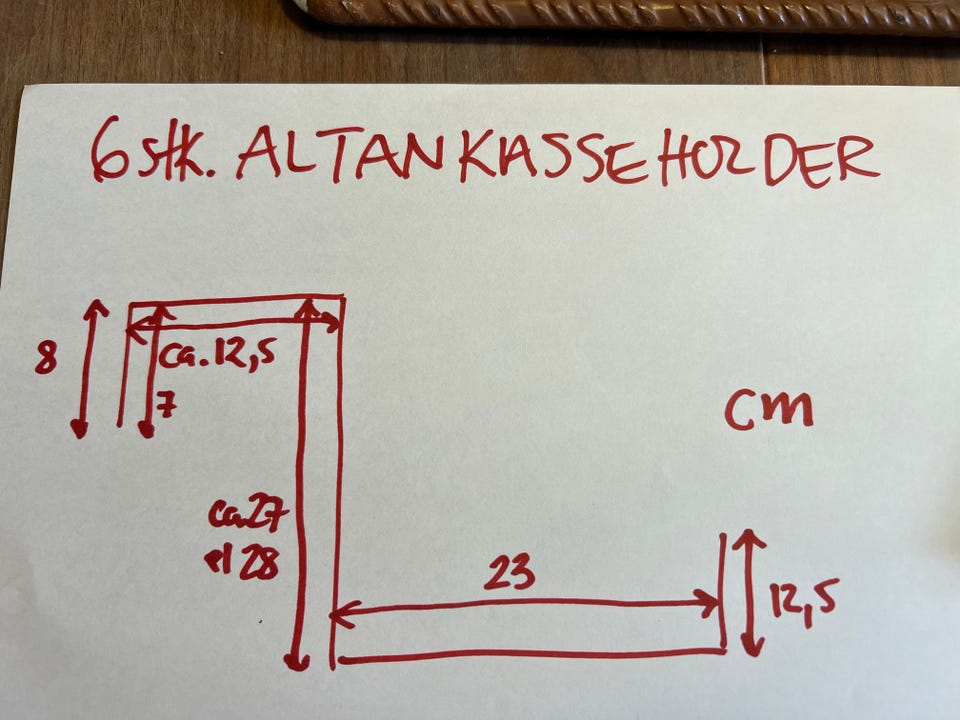 6 stk. ALTANKASSEHOLDER
8
ca. 12,5
7
cm
ca. 27
el 28
23
12,5